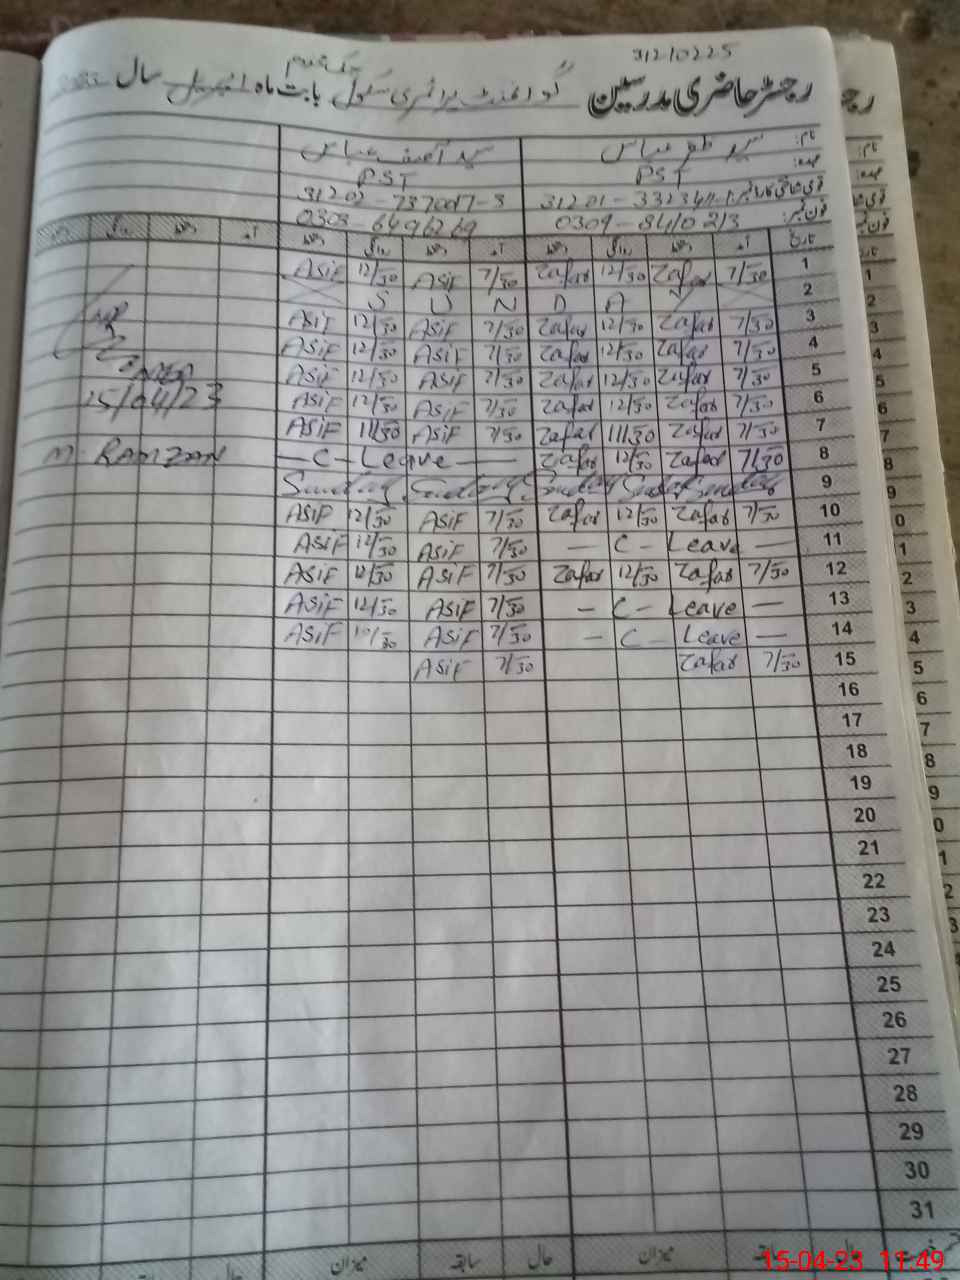 31210225
رجسٹر حاضری مدرسین گورنمنٹ پرائمری سکول بابت ماہ اپریل سال 2023
نام: سید ظفر عباس سید آصف عباس
عہدہ: PST PST
قومی شناختی کارڈ نمبر: 31201-332341 31202-7370017-3
فون نمبر: 0309-8410213 0303-6496269
تاریخ آمد دستخط روانگی دستخط آمد دستخط روانگی دستخط آمد دستخط روانگی دستخط
ASiF 12/30 ASiF 7/30 Zafar 12/30 Zafar 7/30 1
S U N D A Y 2
ASiF 12/30 ASiF 7/30 Zafar 12/30 Zafar 7/30 3
ASiF 12/30 ASiF 7/30 Zafar 12/30 Zafar 7/30 4
ASiF 12/30 ASiF 7/30 Zafar 12/30 Zafar 7/30 5
15/04/23 ASiF 12/30 ASiF 7/30 Zafar 12/30 Zafar 7/30 6
ASiF 11/30 ASiF 7/30 Zafar 11/30 Zafar 7/30 7
M. RAMZAN — C — Leave — Zafar 12/30 Zafar 7/30 8
Sunday Sunday Sunday Sunday Sunday 9
ASiF 12/30 ASiF 7/30 Zafar 12/30 Zafar 7/30 10
ASiF 12/30 ASiF 7/30 — C — Leave — 11
ASiF 12/30 ASiF 7/30 Zafar 12/30 Zafar 7/30 12
ASiF 12/30 ASiF 7/30 — C — Leave — 13
ASiF 10/30 ASiF 7/30 — C — Leave — 14
ASiF 7/30 Zafar 7/30 15
16
17
18
19
20
21
22
23
24
25
26
27
28
29
30
31
حال سابقہ میزان حال سابقہ میزان حال سابقہ
15-04-23 11:49